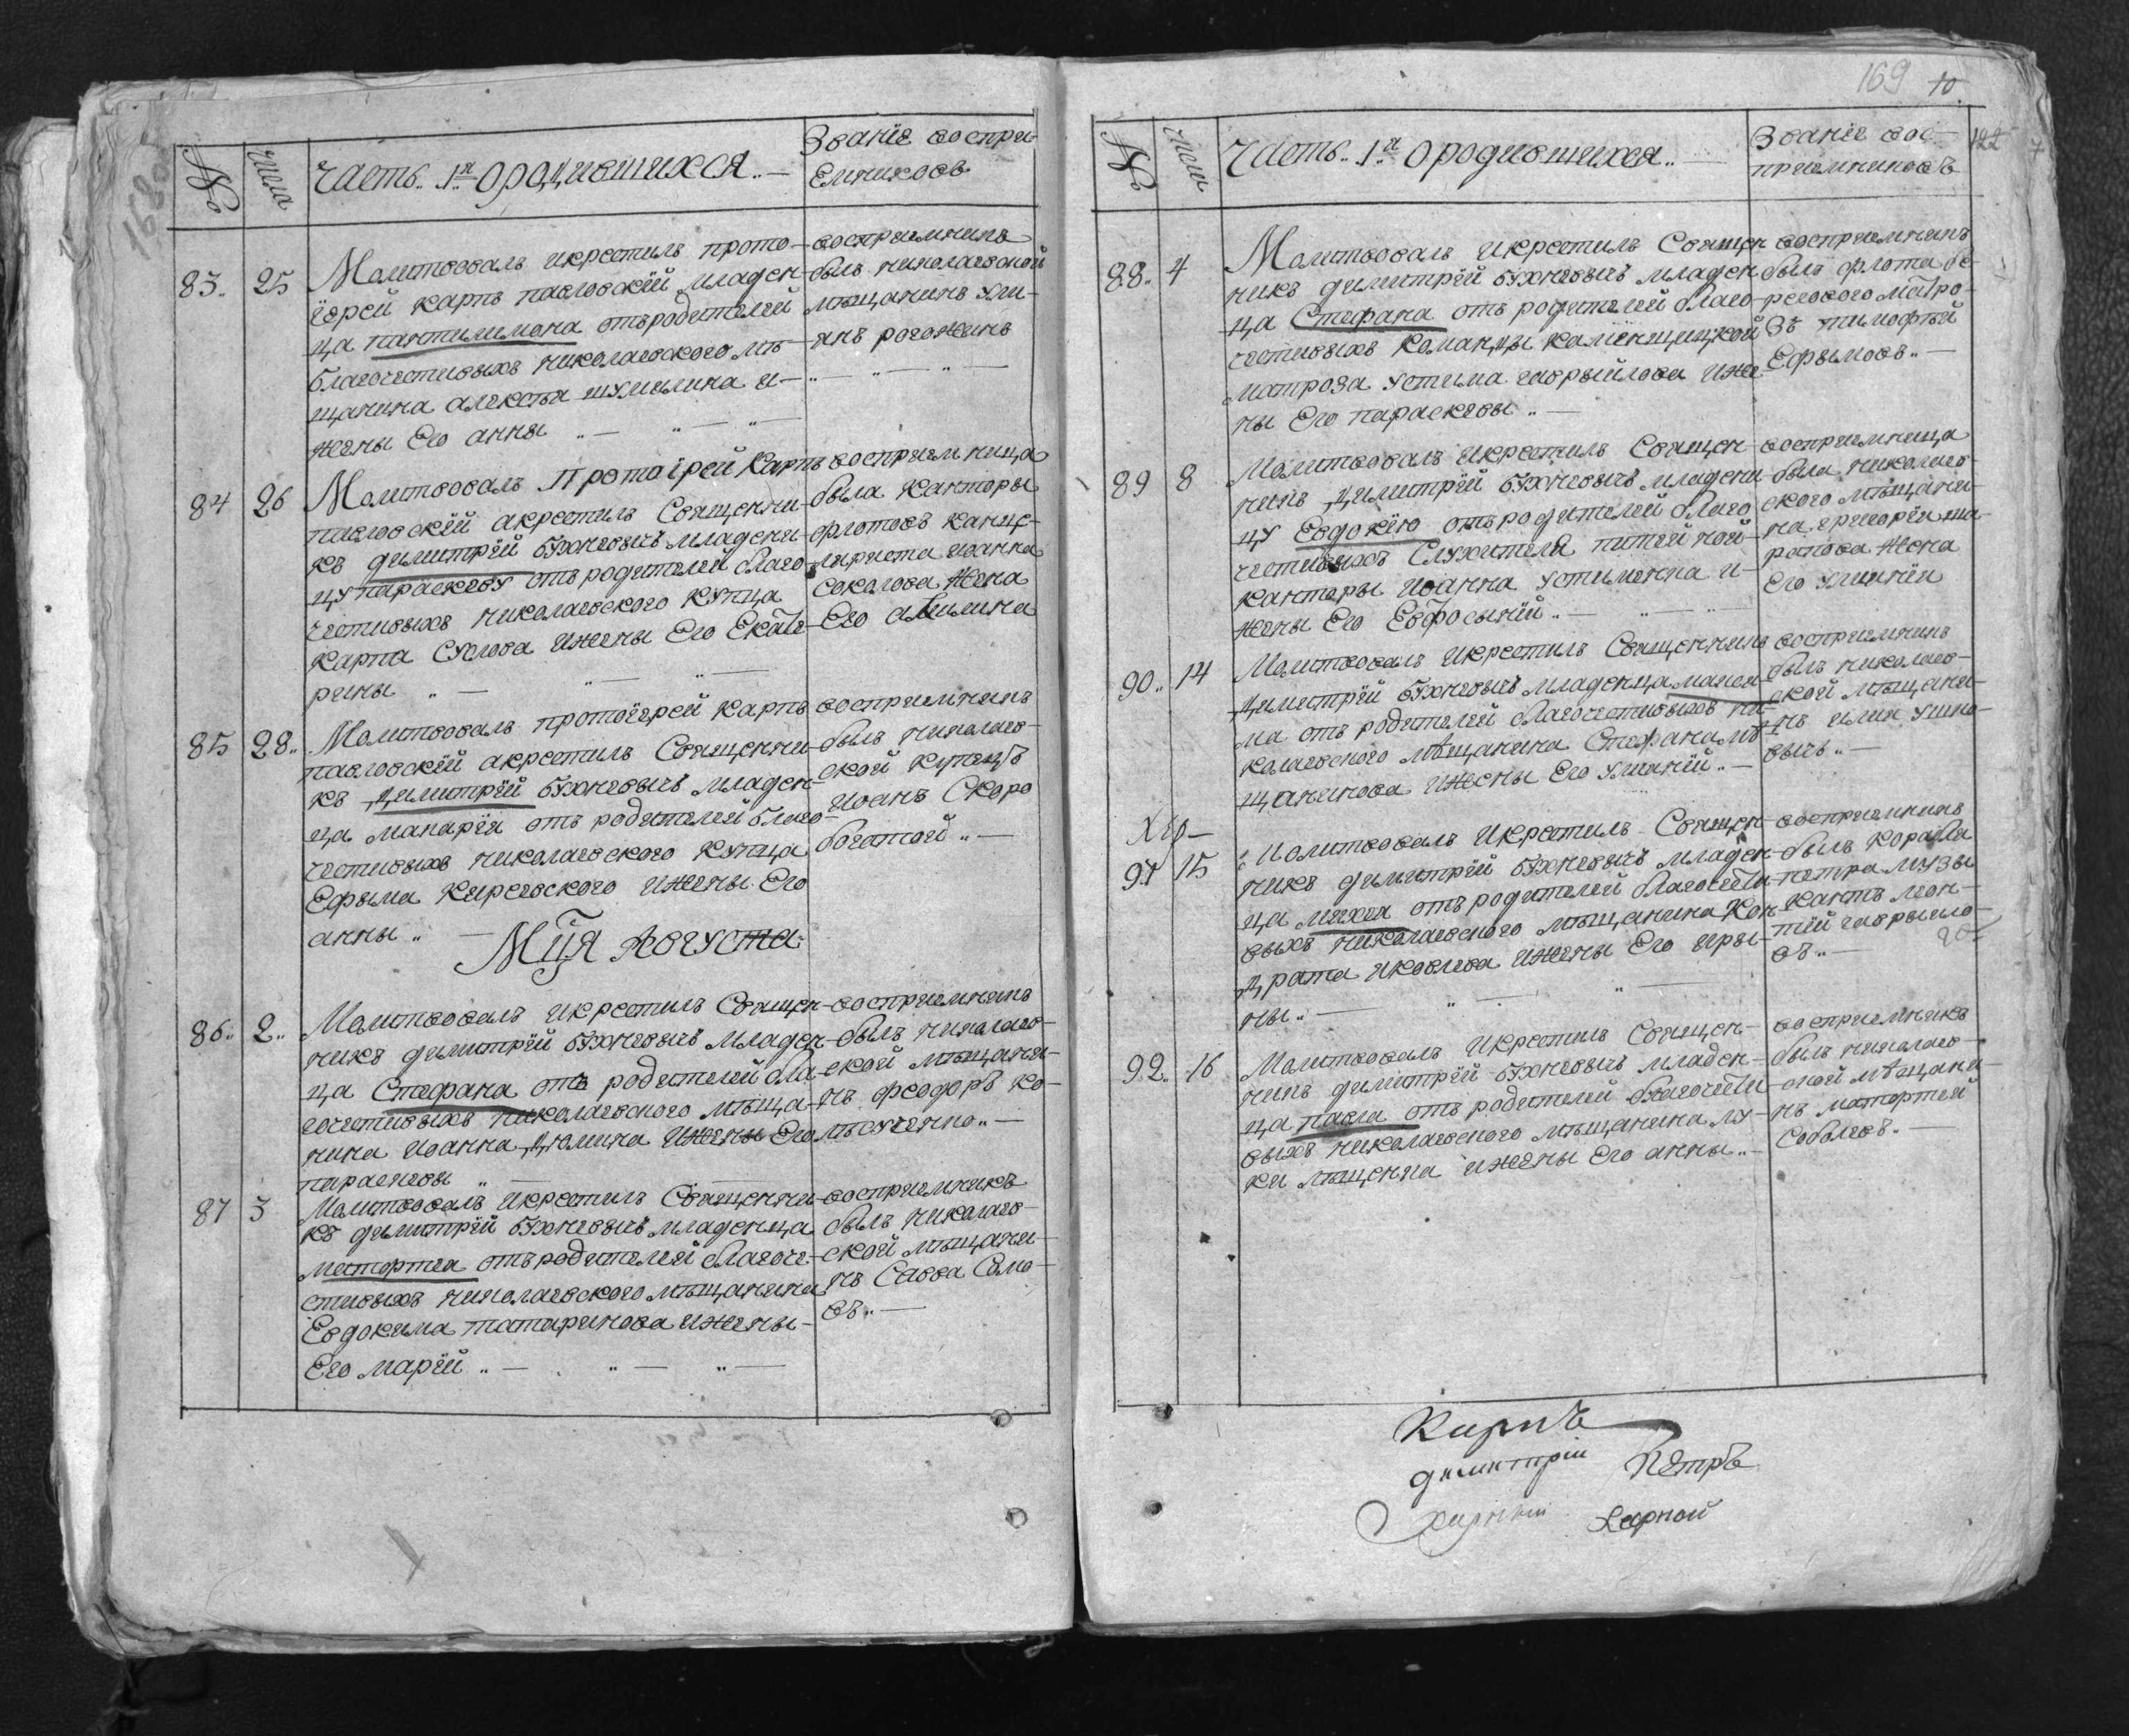 168 об
№
числа
Часть 1я о родившихся
Званіе воспри-
емниковъ
83.
25
Молитвовалъ икрестилъ прото-
іерей карпъ павловскій младен-
ца пантилимона отъродителей
благочестивыхъ николаевского мѣ-
щанина алексѣя шумилина и-
жены Его анны
восприемникъ
былъ николаевской
мѣщанинъ ули-
янъ рогожинъ
84
26
Молитвовалъ Протоіерей Карпъ
павловскій акрестилъ Священни-
къ димитрій младени-
цу параскеву отъродителей благо-
честивыхъ николаевского купца
карпа Сухова ижены Его Екате-
рины
восприемница
была канторы
флотовъ канце-
лариста иоанна
соколова жена
Его акилина
85
28
Молитвовалъ протоіерей карпъ
павловскій акрестилъ Священни-
къ димитрій младен-
ца макарія отъ родителей благо-
честивыхъ николаевского купца
Ефыма Киреевского ижены Его
анны
восприемникъ
былъ николаев-
ской купецъ
иоанъ Скоро
богатой
Мца Августа
86
2
Молитвовалъ икрестилъ Священ-
никъ димитрій младен-
ца Стефана отъ родителей бла-
гочестивыхъ николаевского мѣща-
нина иоанна дюмина ижены Его
параскевы
восприемникъ
былъ николаев-
ской мѣщани-
нъ феодоръ ко-
лѣсниченко
87
3
Молитвовалъ икрестилъ Священни-
къ димитрій младенца
матфея отъродителей благоче-
стивыхъ николаевского мѣщанина
Евдокима татаринова ижены-
Его маріи
восприемникъ
былъ николаев-
ской мѣщани-
нъ Савва Сомо-
въ
169 10
122
№
числа
Часть 1я о родившихся
Званіе вос-
приемниковъ
88.
4
Молитвовалъ икрестилъ Священ
никъ димитрій младен
ца Стефана отъ родителей благо-
честивыхъ команды каменщицкой
матроза устима гаврыйлова ижe
ны Его параскевы
восприемникъ
былъ флота бе-
регового матро-
зъ тимофѣй
Ефымовъ
89
8
Молитвовалъ икрестилъ Священ-
никъ димитрій младени-
цу Евдокію отъродителей благо
честивыхъ Служителя питейной
канторы иоанна устименка и-
жены Его Евфосыніи
восприемница
была николаев-
ского мѣщани-
на григорія ша-
рапова жена
Его улиянія
90
14
Молитвовалъ икрестилъ Священникъ
димитрій младенца
ма отъ родителей благочестивыхъ ни-
колаевского мѣщанина Стефана мѣ-
щанинова ижены Его улианіи
восприемникъ
былъ николаев-
ской мѣщани-
нъ илия ушко-
вичъ
91
15
Молитвовалъ икрестилъ Священ-
никъ димитрій младен-
ца михея отъ родителей благочести-
выхъ николаевского мѣщанина Кон-
драта яковлева ижены Его иры-
ны
восприемникъ
былъ корабля
петра музы
кантъ мон-
тій гаврыло-
въ
92
16
Молитвовалъ икрестилъ Священ-
никъ димитрій младен-
ца павла отъ родителей благочести-
выхъ николаевского мѣщанина лу-
ки мѣщенка ижены Его анны
восприемникъ
былъ николаев-
ской мѣщани-
нъ матфей
Соболевъ
Карпъ
димитрій
Петръ